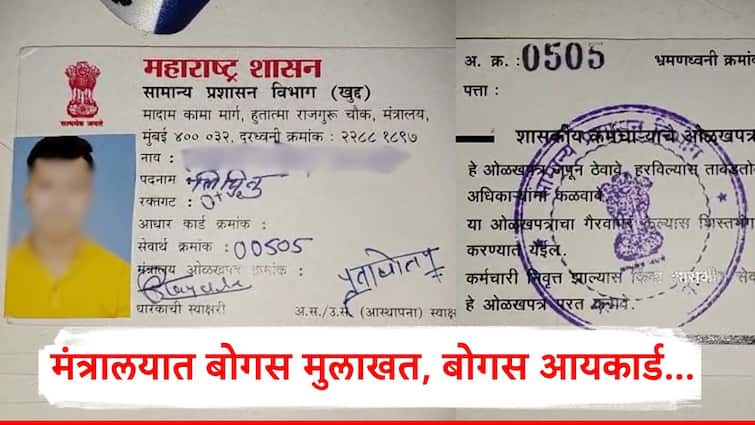 महाराष्ट्र शासन
सामान्य प्रशासन विभाग (खुद्द)
मादाम कामा मार्ग, हुतात्मा राजगुरू चौक, मंत्रालय,
मुंबई ४०० ०३२. दूरध्वनी क्रमांक : २२८८ १८९७
नाव :
पदनाम :
रक्तगट : O+
आधार कार्ड क्रमांक :
सेवार्थ क्रमांक : 00505
मंत्रालय ओळखपत्र क्रमांक :
धारकाची स्वाक्षरी
अ.स./उ.स. (आस्थापना) स्वाक्ष
सत्यमेव जयते
अ. क्र. : 0505 भ्रमणध्वनी क्रमांक
पत्ता :
शासकीय कर्मचाऱ्याचे ओळखपत्र
हे ओळखपत्र जपून ठेवावे, हरविल्यास
अधिकाऱ्यांना कळवावे.
या ओळखपत्राचा गैरवापर केल्यास शिस्तभंग
करण्यात येईल.
कर्मचारी निवृत्त झाल्यास किंवा शासकीय सेव
हे ओळखपत्र परत करावे.
मंत्रालयात बोगस मुलाखत, बोगस आयकार्ड...